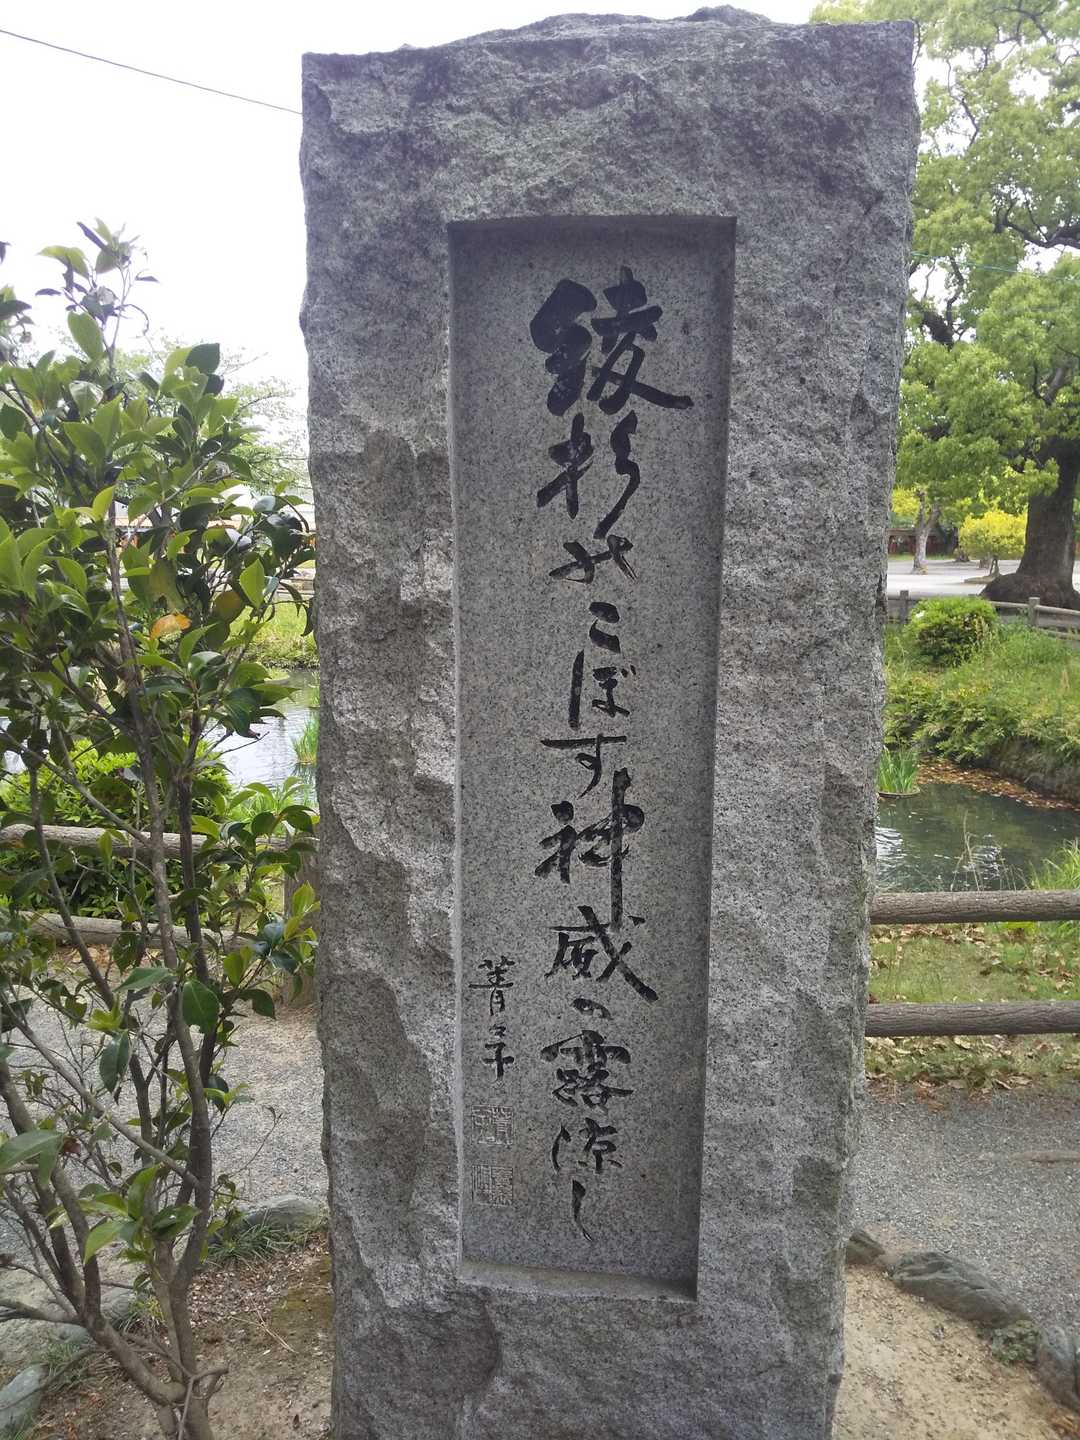 綾杉のこぼす神威の露涼し
菁子